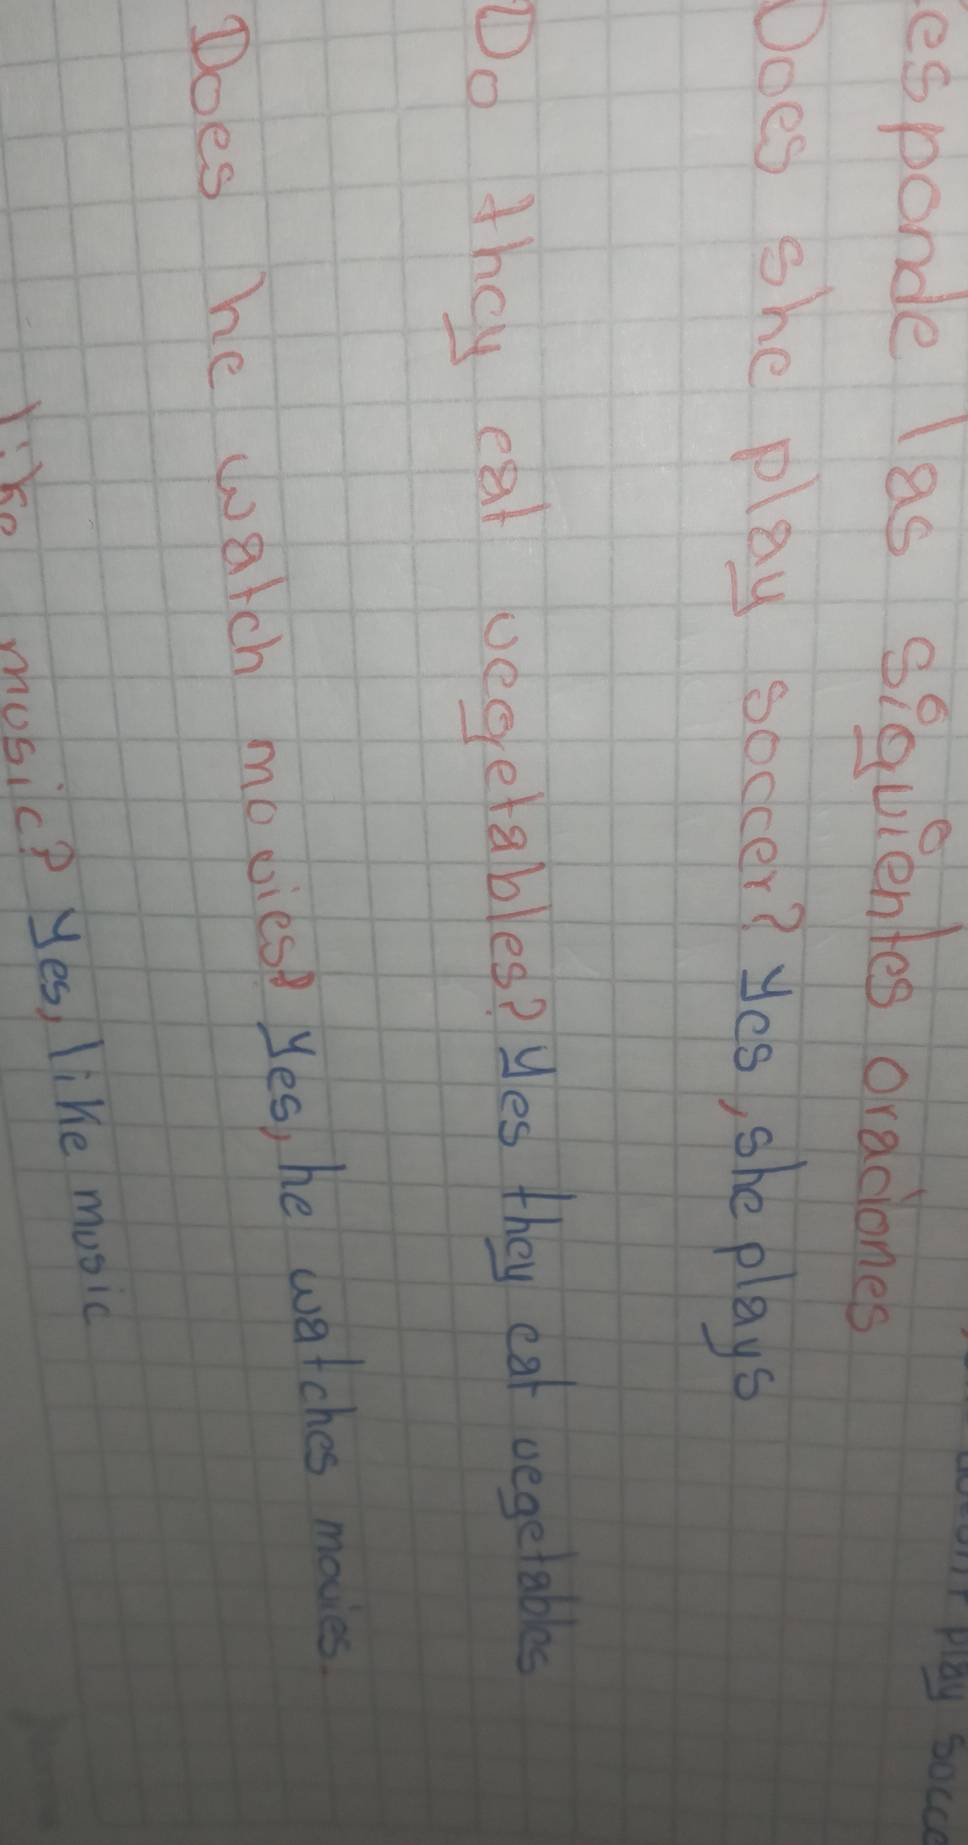 play socce
esponde las siguientes oraciones
Does she play soccer? Yes, she plays
Do they eat vegetables? Yes they eat vegetables
Does he watch movies? Yes, he watches movies.
like music? Yes, like music